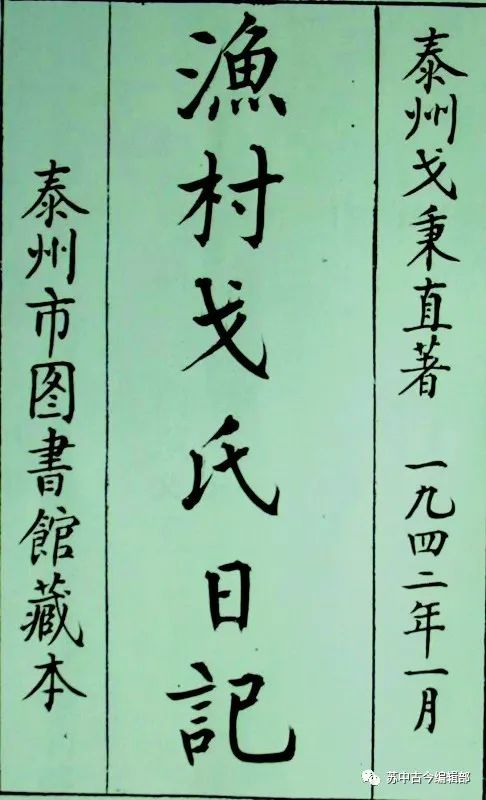 泰州戈秉直著 一九四二年一月
漁村戈氏日記
泰州市图書館藏本
苏中古今编辑部